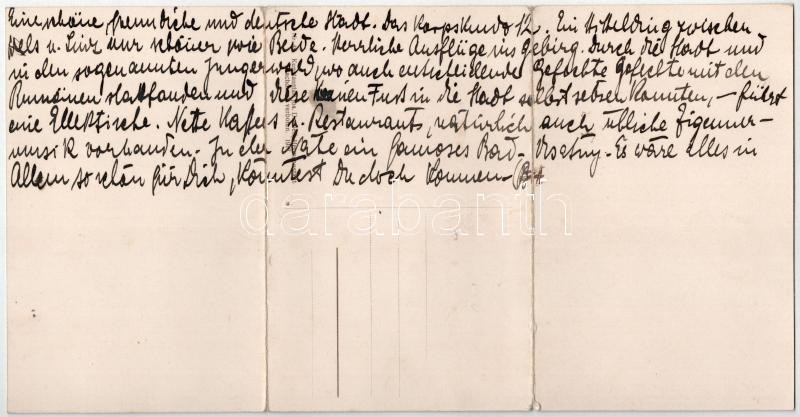 Eine schöne, freundliche und deutsche Stadt. Das Korpskmdo 12. Ein Mittelding zwischen
Wels u. Linz nur schöner wie Beide. Herrliche Ausflüge ins Gebirg. Durch die Stadt und
in den sogenannten Jungerwald, wo auch entscheidende Gefechte mit den
Rumänen stattfanden und diese keinen Fuss in die Stadt selbst setzen konnten, – führt
eine Ellektische. Nette Kaffees u. Restaurants, natürlich auch übliche Zigeuner-
musik vorhanden. In der Nähe ein famoses Bad – Es wäre alles in
Allem so schön für Dich, könntest Du doch kommen –
darabanth